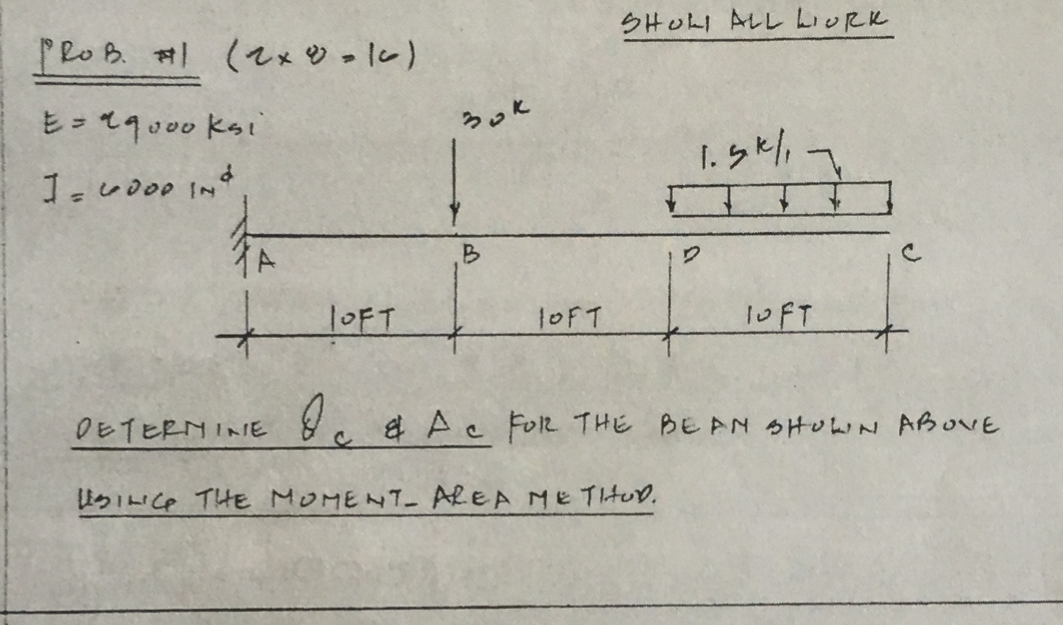 SHOW ALL WORK
PROB. #1 (2 x 8 = 16)
E = 29000 ksi
30ᵏ
1.5 ᵏ/'
I = 6000 IN⁴
A B D C
10FT 10FT 10FT
DETERMINE θc & Δc FOR THE BEAM SHOWN ABOVE
USING THE MOMENT-AREA METHOD.